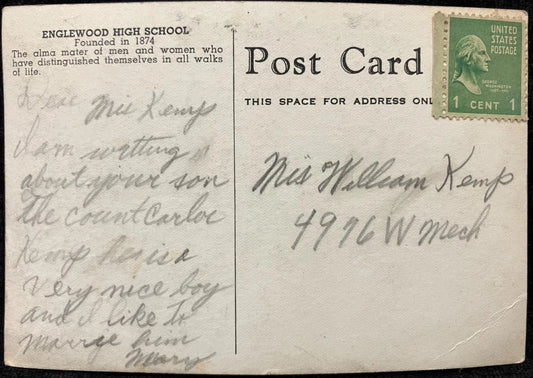 ENGLEWOOD HIGH SCHOOL
Founded in 1874
The alma mater of men and women who
have distinguished themselves in all walks
of life.
Dear Mis Kemp
I am writting
about your son
the count Carloe
Kemp He is a
very nice boy
and I like to
marrye him
Mary
Post Card
THIS SPACE FOR ADDRESS ONL
UNITED
STATES
POSTAGE
GEORGE
WASHINGTON
1 CENT 1
Mis William Kemp
4976 W Mech